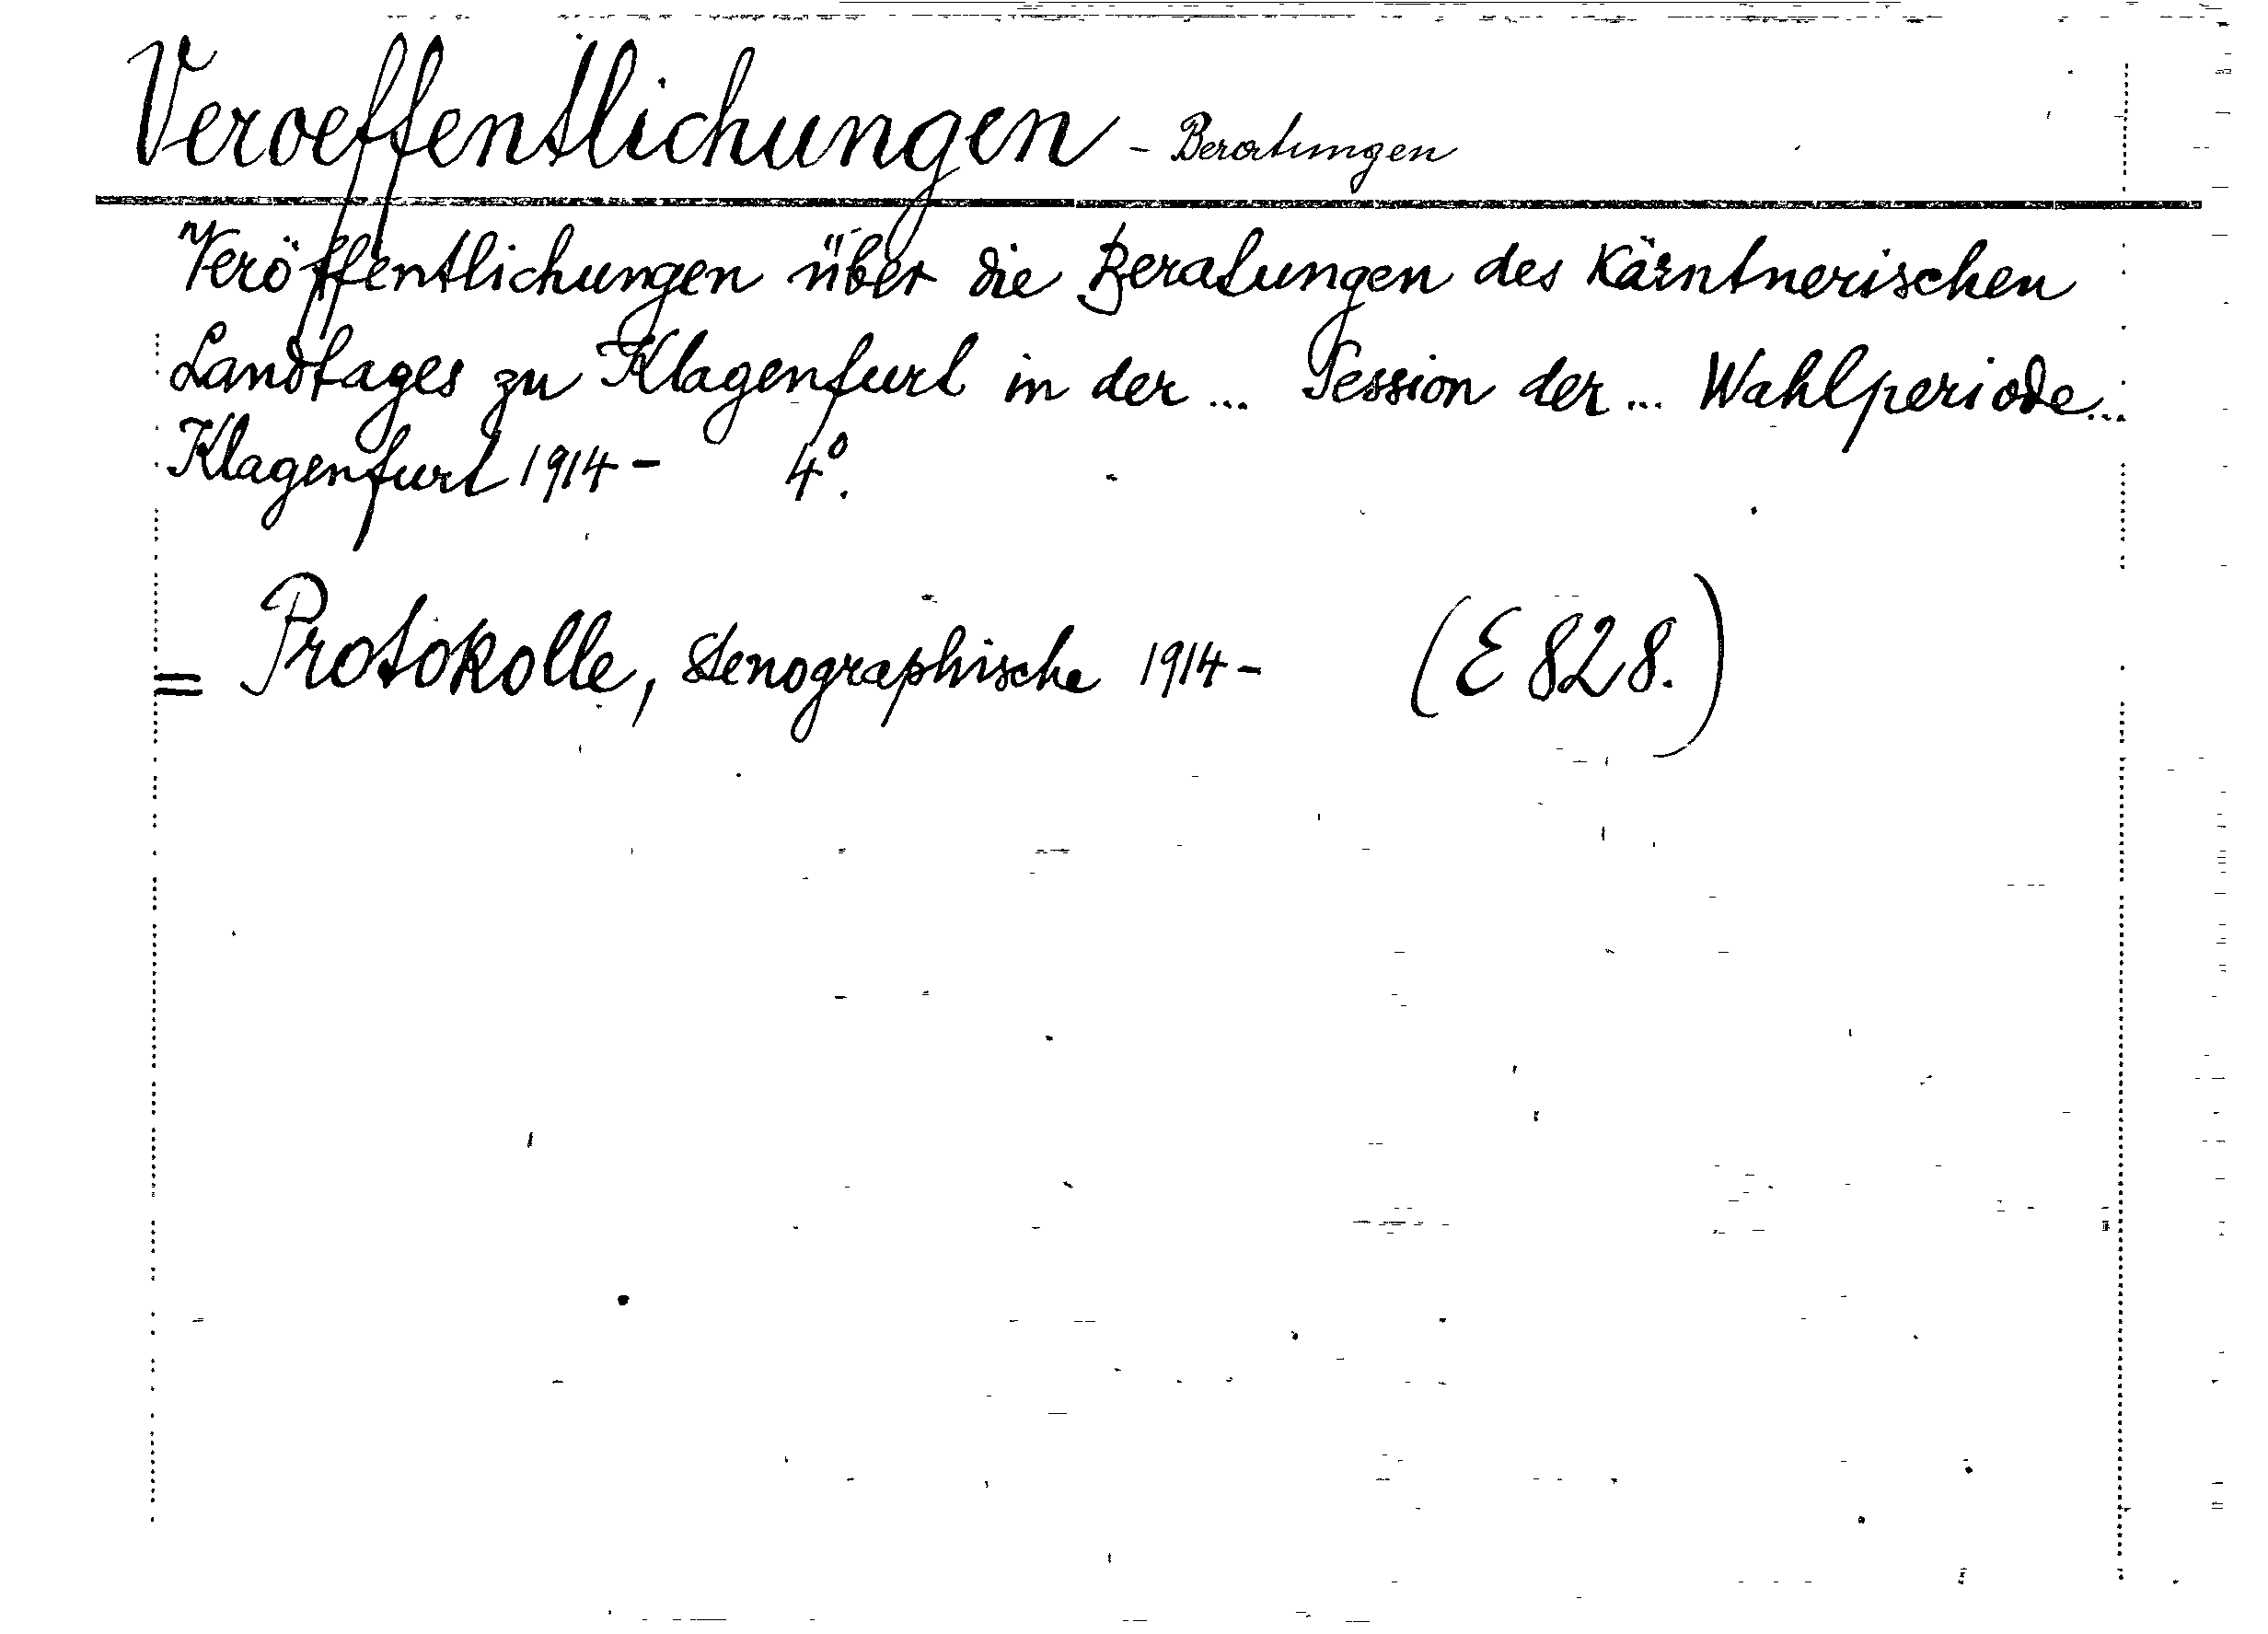 Veroeffentlichungen - Beratungen
Veröffentlichungen über die Beratungen des Kärntnerischen
Landtages zu Klagenfurt in der ... Session der ... Wahlperiode...
Klagenfurt 1914 - 4°.
= Protokolle, stenographische 1914 - (E 828.)